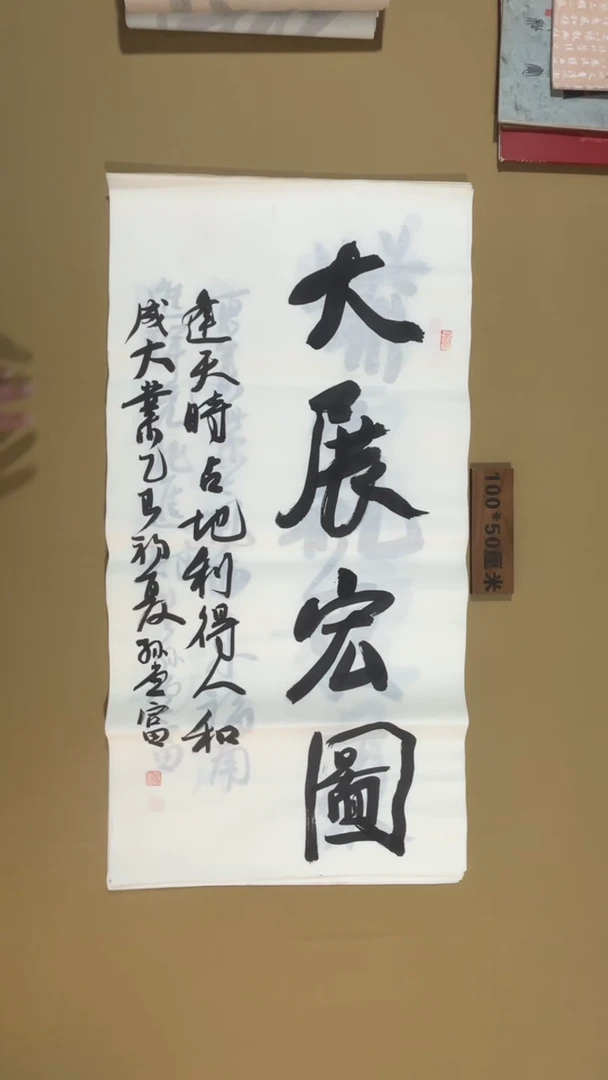 大展宏圖
逢天時占地利得人和
成大業乙巳初夏孫富
100*50厘米